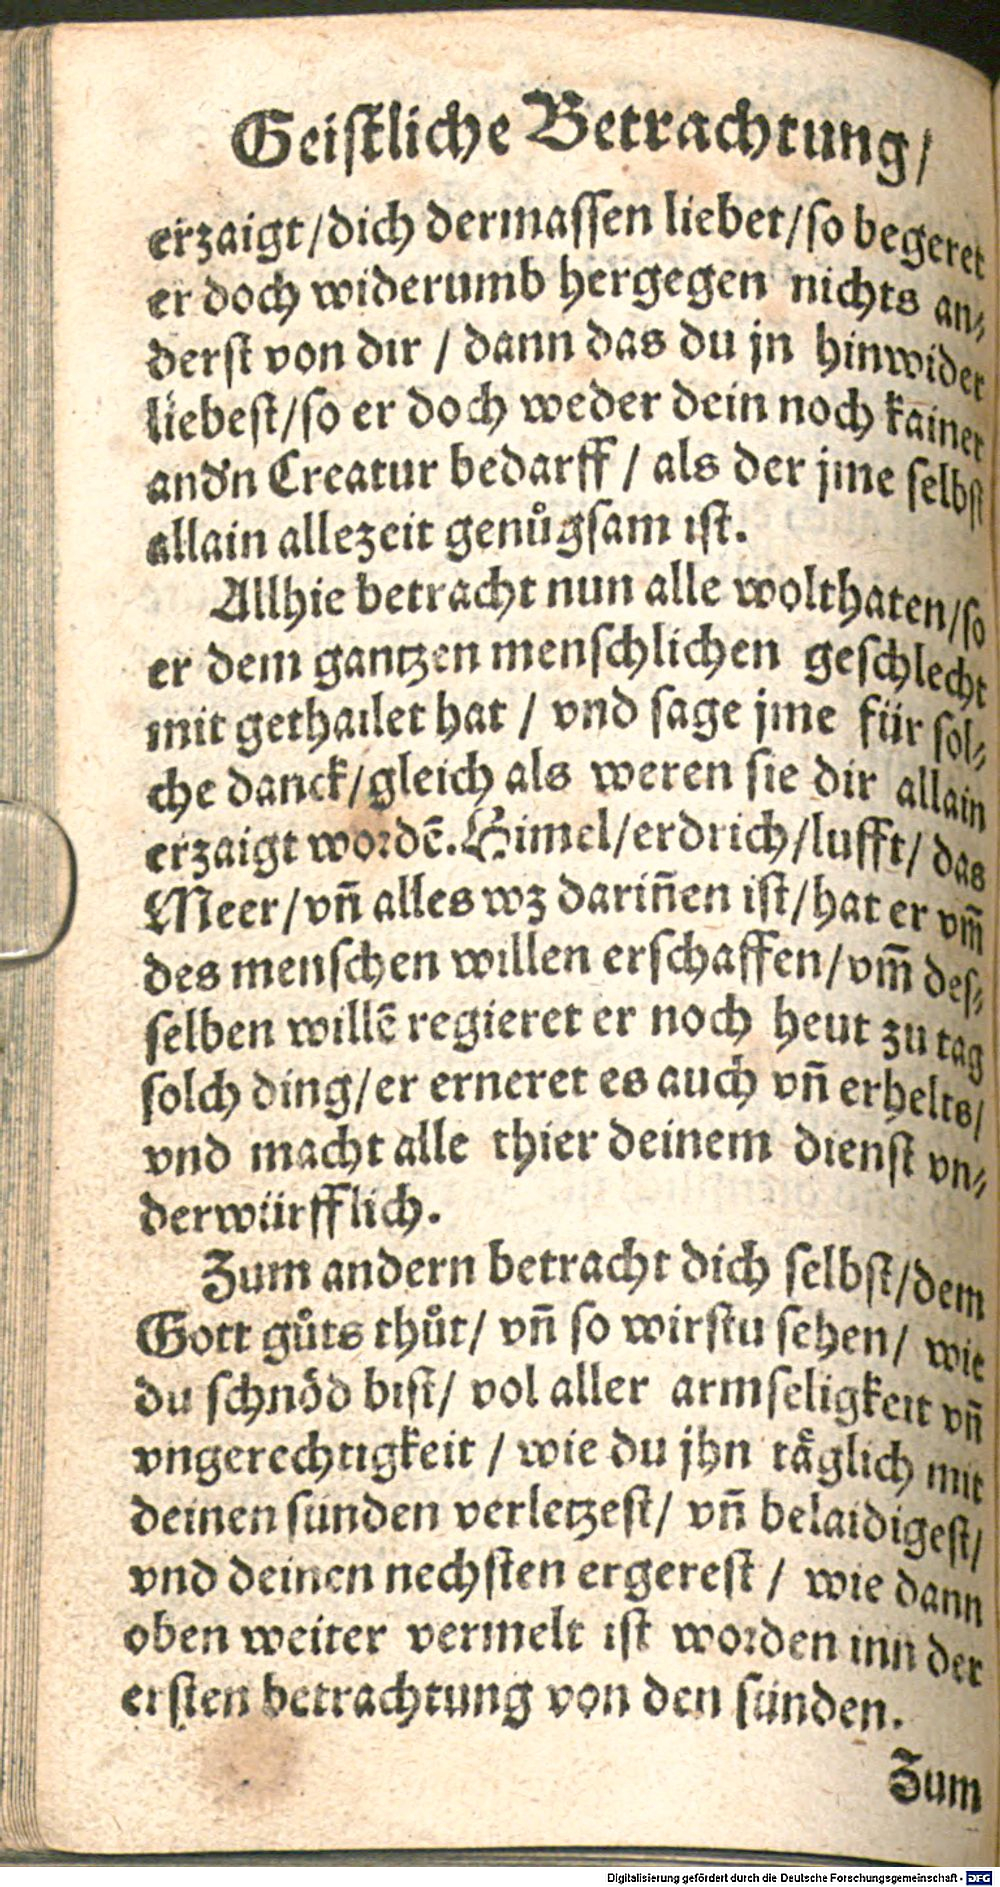 Geiſtliche Betrachtung/
erzaigt/dich dermaſſen liebet/ſo begeret
er doch widerumb hergegen nichts an⸗
derſt von dir / dann das du jn hinwider
liebeſt/ſo er doch weder dein noch kainer
and'n Creatur bedarff / als der jme ſelbſt
allain allezeit genůgſam iſt.
Allhie betracht nun alle wolthaten/ſo
er dem gantzen menſchlichen geſchlecht
mit gethailet hat / vnd ſage jme für ſol⸗
che danck/gleich als weren ſie dir allain
erzaigt wordē. Himel/erdrich/lufft/ das
Meer/vñ alles wz dariñen iſt/hat er vm̃
des menſchen willen erſchaffen/vm̃ deſ⸗
ſelben willē regieret er noch heut zu tag
ſolch ding/er erneret es auch vñ erhelts/
vnd macht alle thier deinem dienſt vn⸗
derwürfflich.
Zum andern betracht dich ſelbſt/dem
Gott gůts thůt/ vñ ſo wirſtu ſehen/ wie
du ſchnöd biſt/ vol aller armſeligkeit vñ
vngerechtigkeit / wie du jhn täglich mit
deinen ſünden verletzeſt/ vñ belaidigeſt/
vnd deinen nechſten ergereſt / wie dann
oben weiter vermelt iſt worden inn der
erſten betrachtung von den ſünden.
Zum
Digitalisierung gefördert durch die Deutsche Forschungsgemeinschaft - DFG